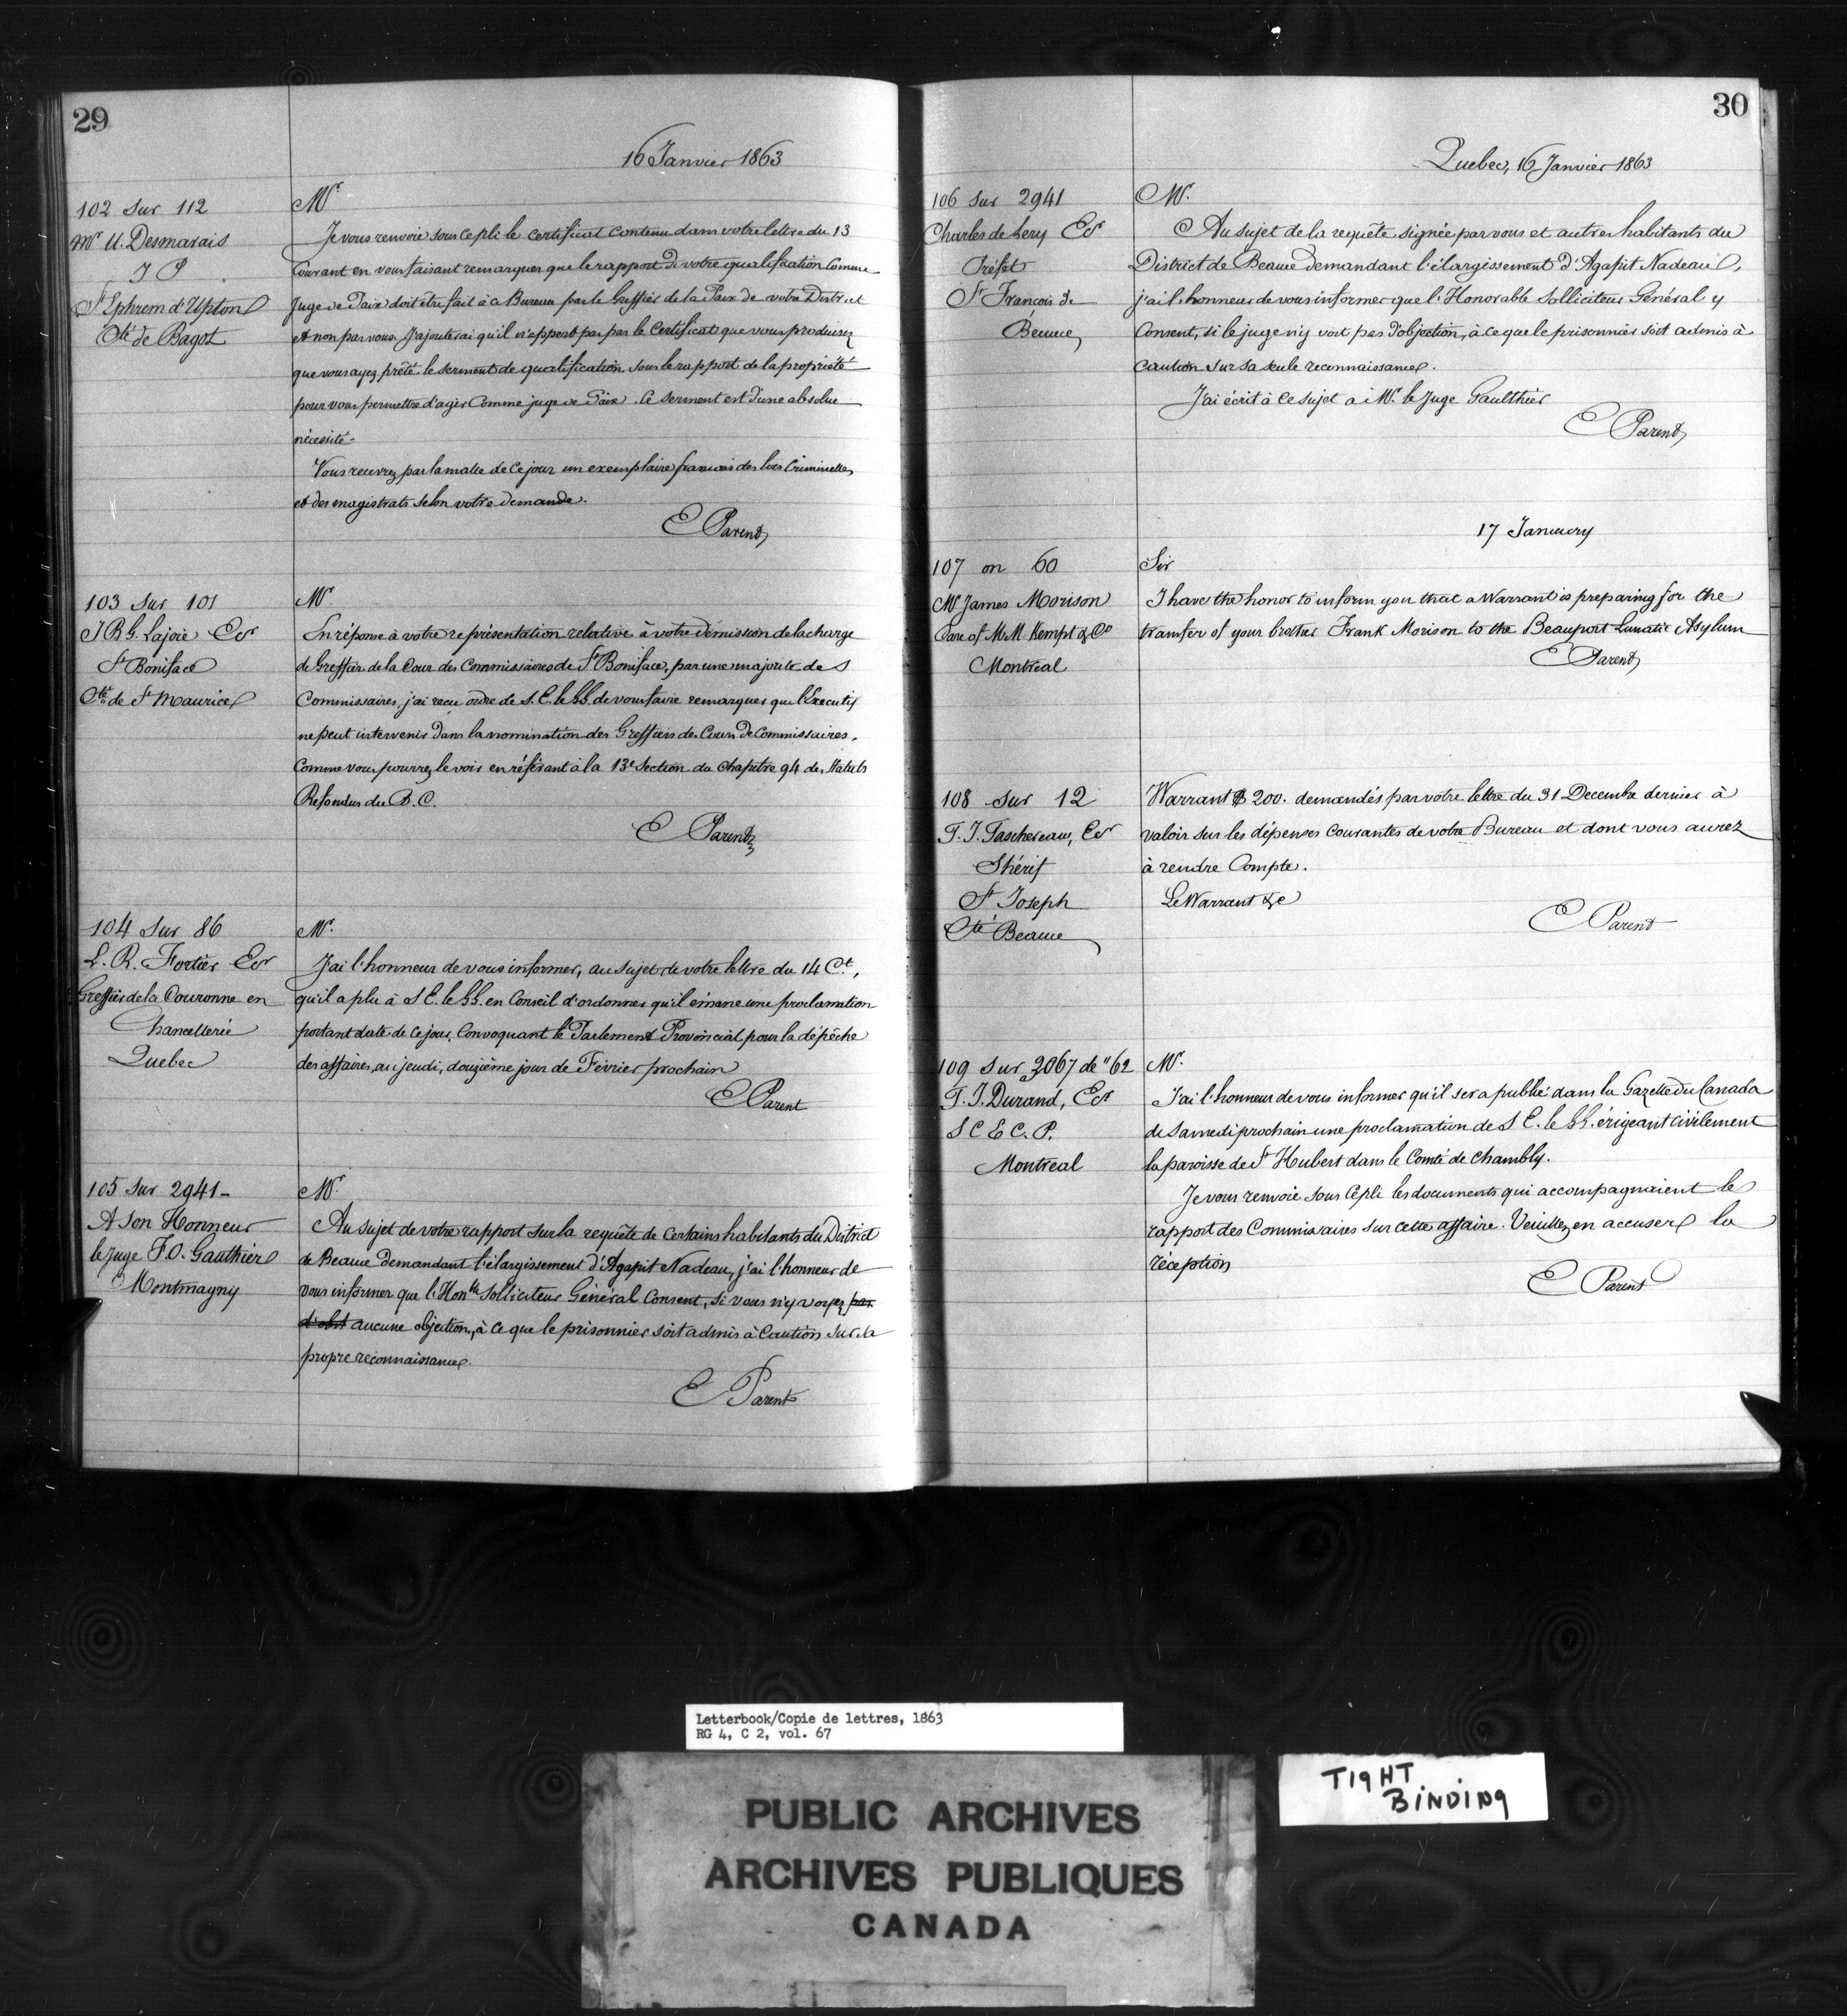 29
16 Janvier 1863
102 sur 112
Mr U. Desmarais
J P
St Ephrem d'Upton
Cté de Bagot
Mr
Je vous renvoie sous ce pli le certificat contenu dans votre lettre du 13
Courant en vous faisant remarquer que le rapport de votre qualification comme
Juge de Paix doit être fait à ce Bureau par le Greffier de la Paix de votre District
et non par vous. J'ajouterai qu'il n'appert pas par le Certificat que vous produisez
que vous ayez prêté le serment de qualification sous le rapport de la propriété
pour vous permettre d'agir comme juge de Paix. Ce serment est d'une absolue
nécessité.
Vous recevrez par la malle de ce jour un exemplaire français des lois Criminelles
et des magistrats selon votre demande.
E Parent
103 sur 101
J B G. Lajoie Ecr
St Boniface
Cté de St Maurice
Mr.
En réponse à votre représentation relative à votre démission de la charge
de Greffier de la Cour des Commissaires de St Boniface, par une majorité de s
Commissaires, j'ai reçu ordre de S. E. le G.G. de vous faire remarquer que l'Executif
ne peut intervenir dans la nomination des Greffiers des Cours de Commissaires,
Comme vous pourrez le voir en référant à la 13e Section du Chapitre 94 des Statuts
Refondus du B. C.
E Parent
104 sur 86
L. R. Fortier Ecr
Greffier de la Couronne en
Chancellerie
Quebec
Mr.
J'ai l'honneur de vous informer, au sujet de votre lettre du 14 Ct,
qu'il a plu à S E. le G.G. en Conseil d'ordonner qu'il émane une proclamation
portant date de ce jour, Convoquant le Parlement Provincial pour la dépêche
des affaires, au jeudi, douzième jour de Février prochain
E Parent
105 sur 2941-
A Son Honneur
le Juge F. O. Gauthier
Montmagny
Mr.
Au sujet de votre rapport sur la requête de Certains habitants du District
de Beauce demandant l'élargissement d'Agapit Nadeau, j'ai l'honneur de
vous informer que l'Honble Solliciteur Général Consent, si vous n'y voyez pas
d'obst aucune objection, à ce que le prisonnier soit admis à Caution sur sa
propre reconnaissance.
E Parent
30
Quebec, 16 Janvier 1863
106 sur 2941
Charles de Lery Ecr
Préfet
St Francois de
Beauce
Mr.
Au sujet de la requête signée par vous et autres habitants du
District de Beauce demandant l'élargissement d'Agapit Nadeau,
j'ai l'honneur de vous informer que l'Honorable Solliciteur Général y
Consent, si le juge n'y voit pas d'objection, à ce que le prisonnier soit admis à
caution sur sa seule reconnaissance.
J'ai écrit à ce sujet a Mr. le Juge Gaulthier
E Parent
17 January
107 on 60
Mr James Morison
Care of M.M. Kempt & Co
Montreal
Sir
I have the honor to inform you that a Warrant is preparing for the
transfer of your brother Frank Morison to the Beauport Lunatic Asylum
E Parent
108 sur 12
T. J. Taschereau, Ecr
Shérif
St Joseph
Cté Beauce
Warrant $ 200. demandés par votre lettre du 31 Decembre dernier à
valoir sur les dépenses courantes de votre Bureau et dont vous aurez
à rendre Compte.
Le Warrant &c
E Parent
109 sur 3067 de "62
F. J. Durand, Ecr
S C E C. P.
Montreal
Mr.
J'ai l'honneur de vous informer qu'il sera publié dans la Gazette du Canada
de Samedi prochain une proclamation de S E. le G.G. érigeant civilement
la paroisse de St Hubert dans le Comté de Chambly.
Je vous renvoie sous ce pli les documents qui accompagnaient le
rapport des Commissaires sur cette affaire. Veuillez en accuser la
réception
E Parent
Letterbook/Copie de lettres, 1863
RG 4, C 2, vol. 67
TIGHT
BINDING
PUBLIC ARCHIVES
ARCHIVES PUBLIQUES
CANADA